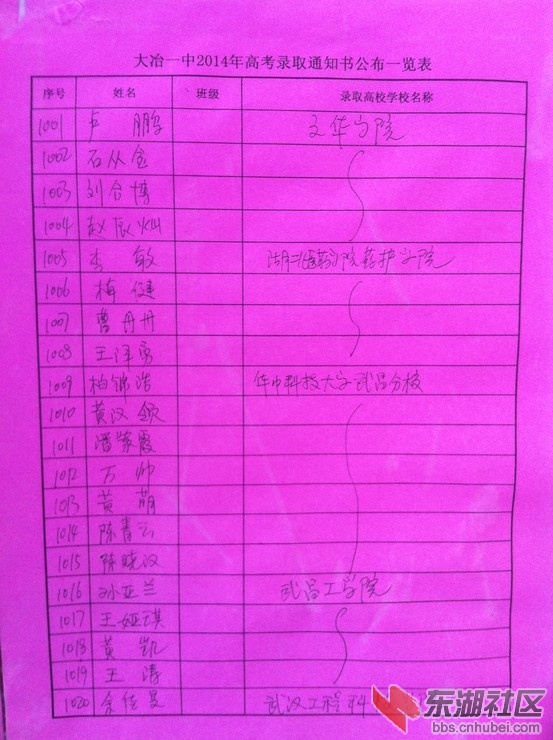 大冶一中2014年高考录取通知书公布一览表
序号 姓名 班级 录取高校学校名称
1001 卢 鹏 文华学院
1002 石从金
1003 刘合博
1004 赵辰灿
1005 李 敏 湖北医药学院药护学院
1006 梅 健
1007 曹丹丹
1008 王泽
1009 柏锦浩 华中科技大学武昌分校
1010 黄汉
1011 潘紫霞
1012 万 帅
1013 黄 萌
1014 陈青云
1015 陈晓汉
1016 孙亚兰 武昌工学院
1017 王娅琪
1018 黄 凯
1019 王 涛
1020 余佳曼 武汉工程科
东湖社区
bbs.cnhubei.com